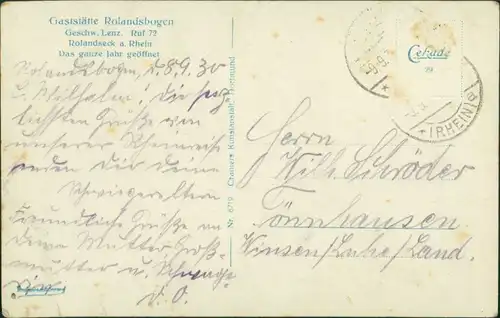 Gaststätte Rolandsbogen
Geschw. Lenz. Ruf 72
Rolandseck a. Rhein
Das ganze Jahr geöffnet
Rolandsbogen, d. 8.9.30
L. Wilhelm! Die herz-
lichsten Grüße von
unserer Rheinreise
senden Dir Deine
Schwiegereltern
Freundliche Grüße an
deine Mutter Groß-
mutter u. Schwager
d. O.
Nr. 6719 Cramers Kunstanstalt, Dortmund
Cekade
29
(RHEIN)
Herrn
Wilh. Schröder
Tönnhausen
Winsen/Luhe/Land.